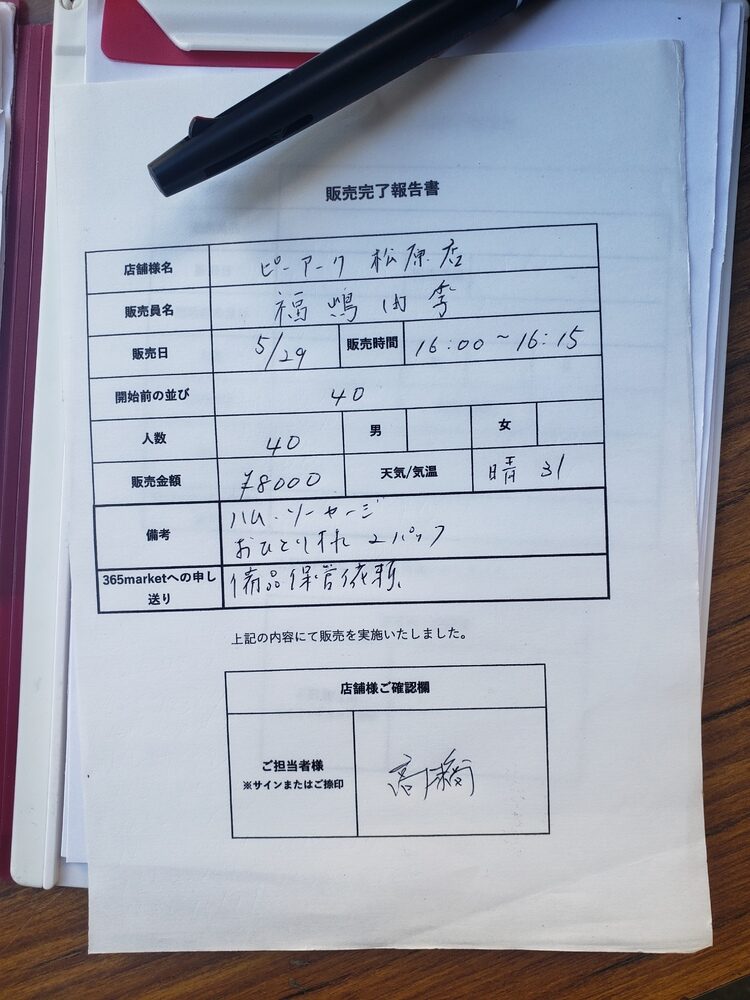 販売完了報告書
店舗様名 ピーアーク 松原店
販売員名 福嶋由季
販売日 5/29 販売時間 16:00~16:15
開始前の並び 40
人数 40 男 女
販売金額 ¥8000 天気/気温 晴 31
備考 ハム・ソーセージ
おひとり様 2パック
365marketへの申し
送り 備品保管依頼
上記の内容にて販売を実施いたしました。
店舗様ご確認欄
ご担当者様
※サインまたはご捺印
高橋